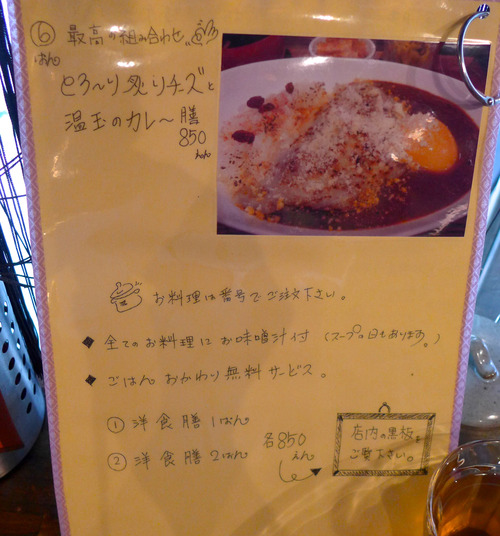 ⑥ 最高の組み合わせ
ばん
とろ〜り炙りチーズと
温玉のカレ〜膳
850
えん
お料理は番号でご注文下さい。
◆ 全てのお料理にお味噌汁付 (スープの日もあります。)
◆ ごはんおかわり無料サービス。
① 洋食膳 1ばん
② 洋食膳 2ばん
各850
えん
店内の黒板を
ご覧下さい。